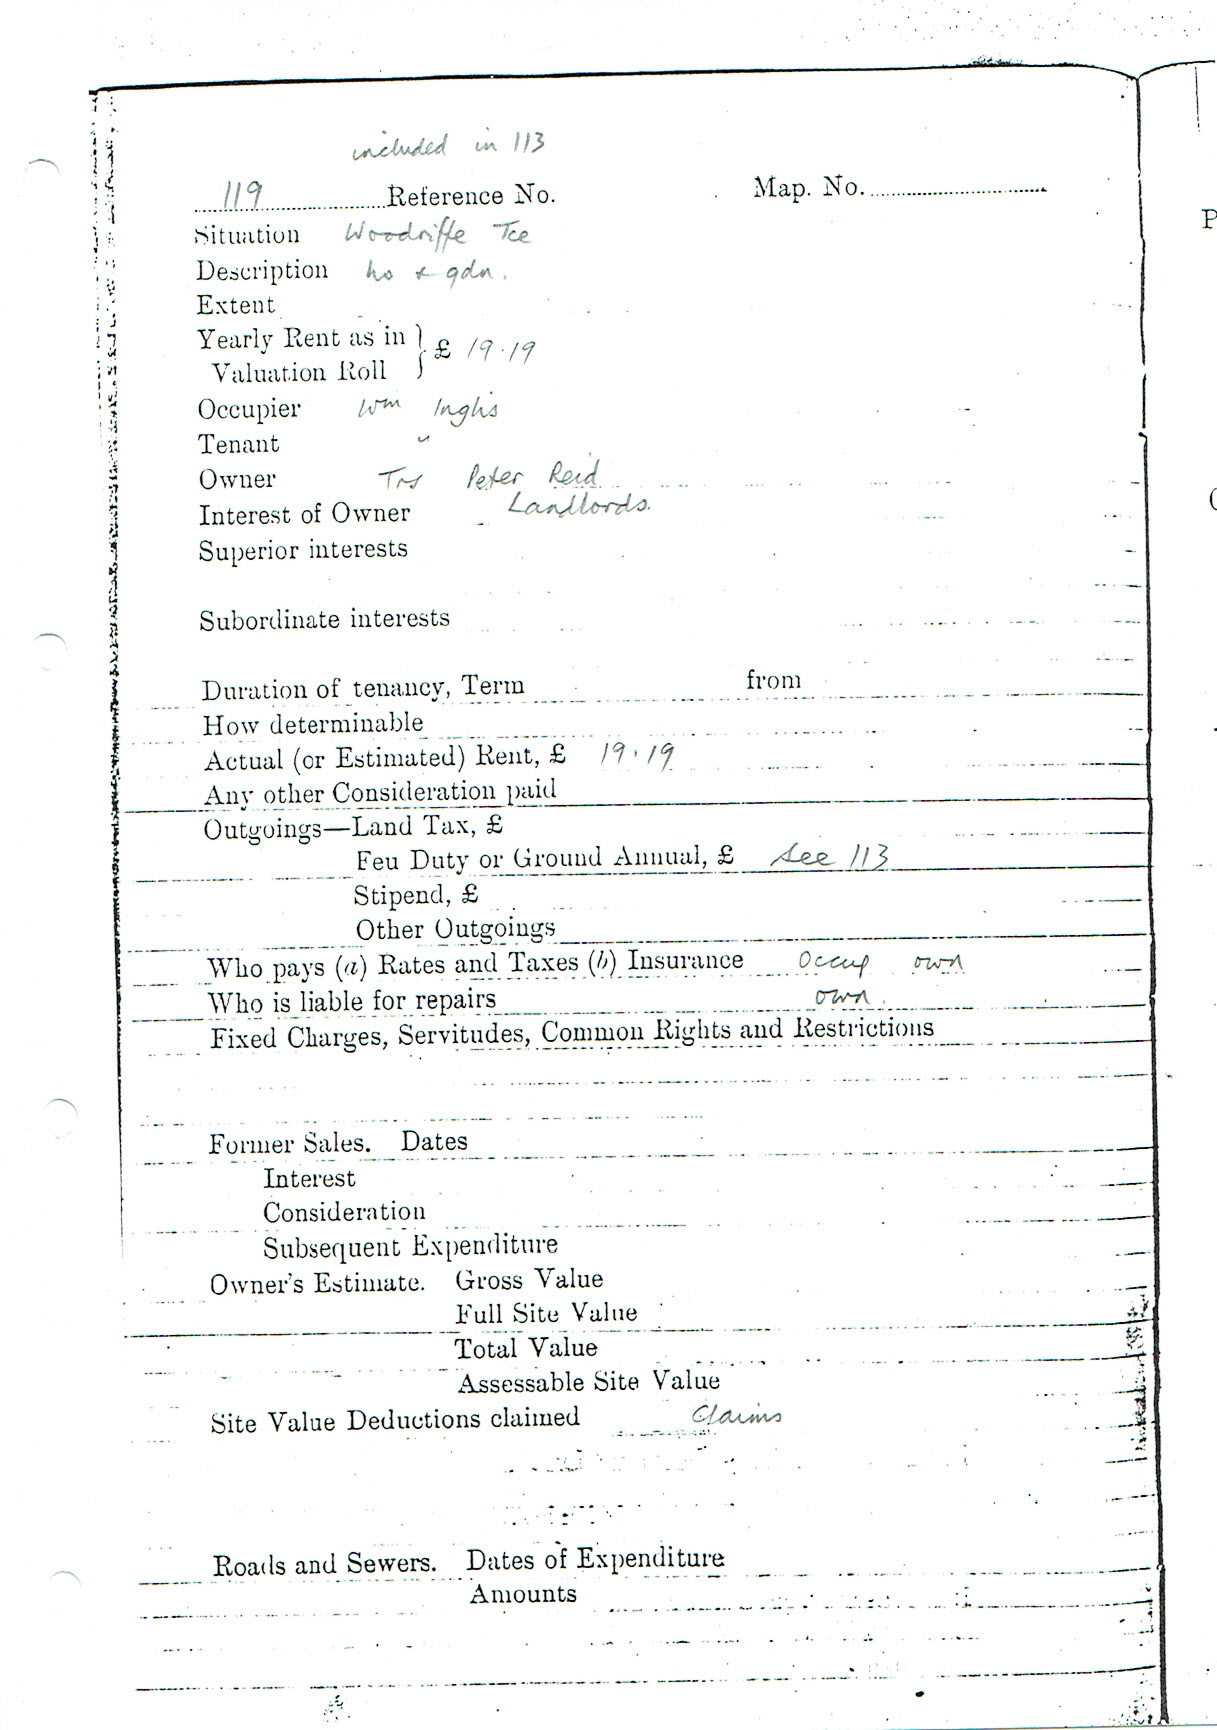 included in 113
119 Reference No. Map. No.
Situation Woodriffe Tce
Description ho & gdn.
Extent
Yearly Rent as in } £ 19.19
Valuation Roll
Occupier Wm Inglis
Tenant "
Owner Trs Peter Reid
Interest of Owner Landlords.
Superior interests
Subordinate interests
Duration of tenancy, Term from
How determinable
Actual (or Estimated) Rent, £ 19.19
Any other Consideration paid
Outgoings—Land Tax, £
Feu Duty or Ground Annual, £ see 113
Stipend, £
Other Outgoings
Who pays (a) Rates and Taxes (b) Insurance Occup own
Who is liable for repairs own.
Fixed Charges, Servitudes, Common Rights and Restrictions
Former Sales. Dates
Interest
Consideration
Subsequent Expenditure
Owner's Estimate. Gross Value
Full Site Value
Total Value
Assessable Site Value
Site Value Deductions claimed Claims
Roads and Sewers. Dates of Expenditure
Amounts
P